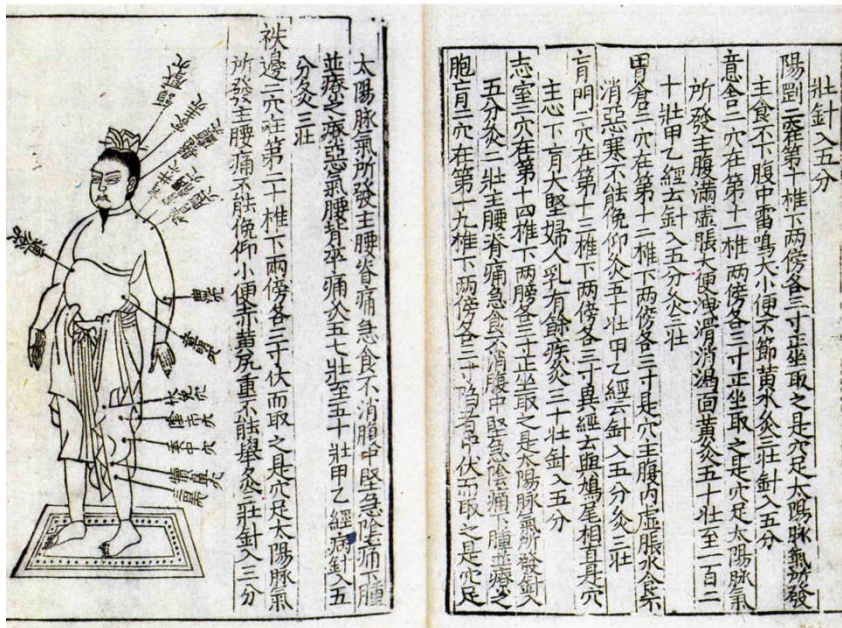 壯針入五分
陽剛二穴第十椎下兩傍各三寸正坐取之是穴足太陽脉氣所發
主食不下腹中雷鳴大小便不節黃水灸三壯針入五分
意舍二穴在第十一椎兩傍各三寸正坐取之是穴足太陽脉氣
所發主腹滿虛脹大便洩滑消渴面黃灸五十壯至一百二
十壯甲乙經云針入五分灸三壯
胃倉二穴在第十二椎下兩傍各三寸是穴主腹內虛脹水食不
消惡寒不能俛仰灸五十壯甲乙經云針入五分灸三壯
肓門二穴在第十三椎下兩傍各三寸異經云與鳩尾相直是穴
主心下肓大堅婦人乳有餘疾灸三十壯針入五分
志室二穴在第十四椎下兩傍各三寸正坐取之是太陽脉氣所發針入
五分灸三壯主腰脊痛急食不消腹中堅急陰痛下腫並療之
胞肓二穴在第十九椎下兩傍各三寸陷者中伏而取之是穴足
太陽脉氣所發主腰脊痛急食不消腹中堅急陰痛下腫
並療之療惡氣腰背卒痛灸五七壯至五十壯甲乙經病針入五
分灸三壯
秩邊二穴在第二十椎下兩傍各三寸伏而取之是穴足太陽脉氣
所發主腰痛不能俛仰小便赤黃尻重不能舉灸三壯針入三分
伏兔穴
陰市穴
犢鼻穴
三里穴